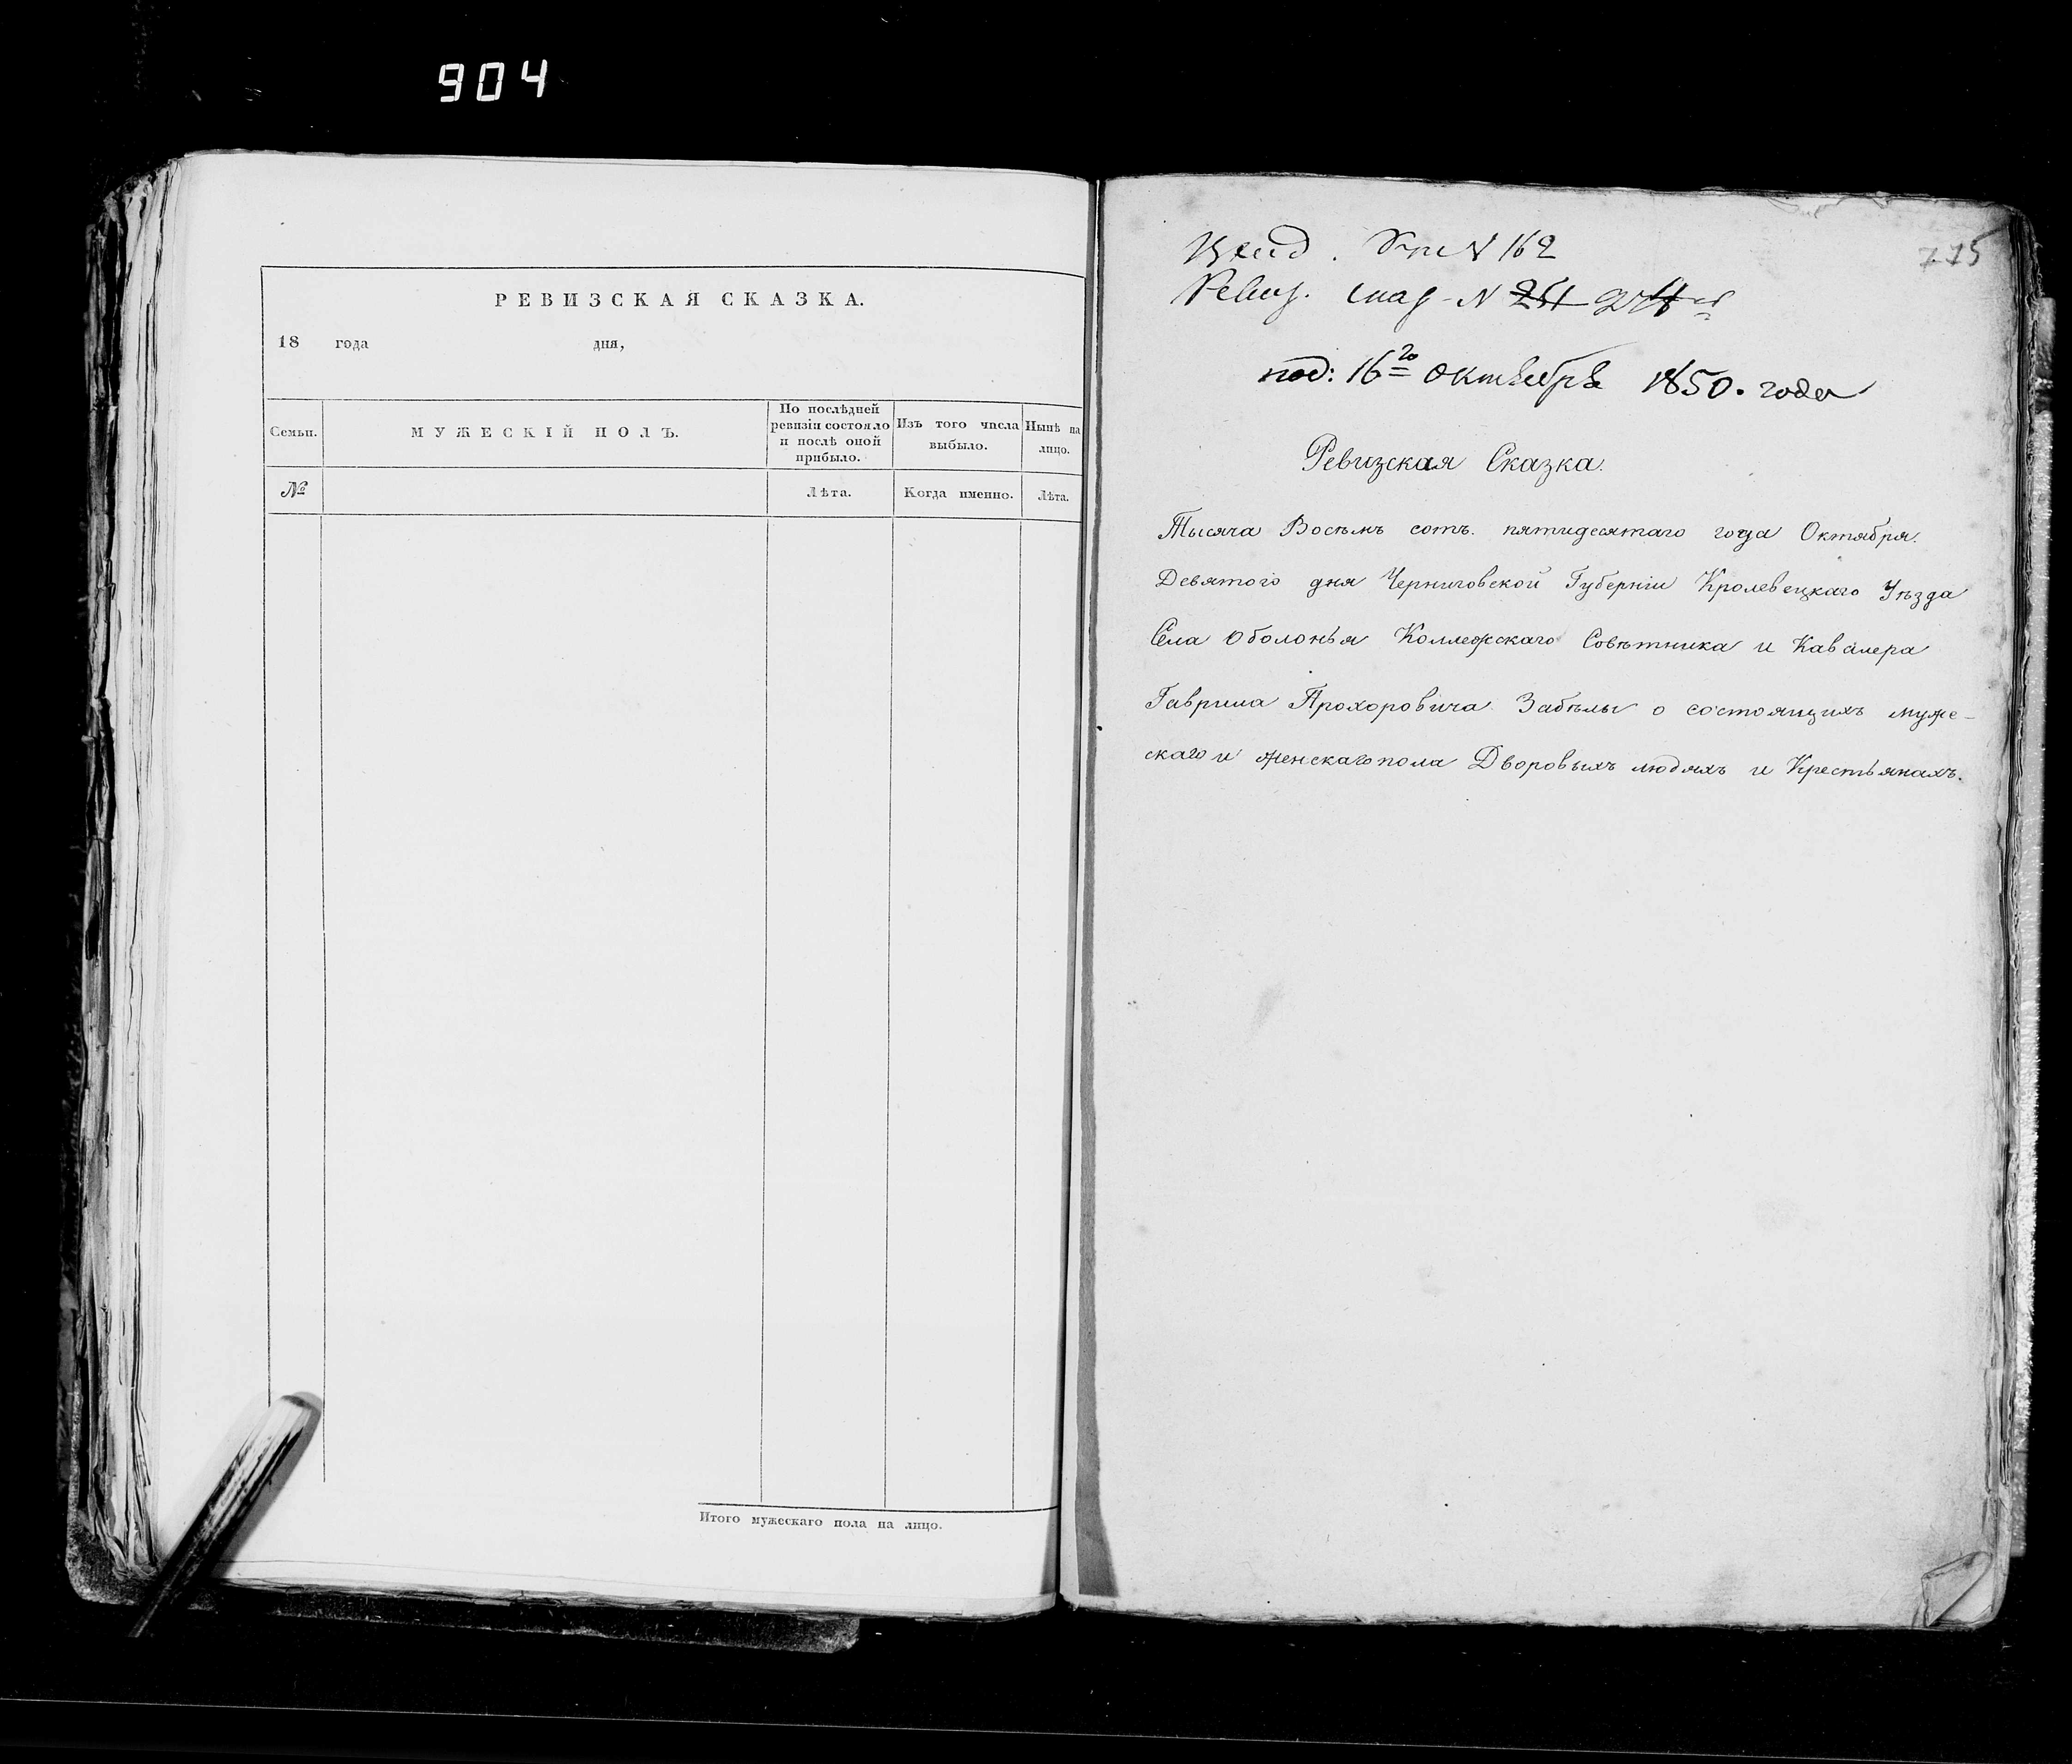 904
РЕВИЗСКАЯ СКАЗКА.
18 года дня,
Семьи.
МУЖЕСКІЙ ПОЛЪ.
По послѣдней
ревизіи состояло
и послѣ оной
прибыло.
Изъ того числа
выбыло.
Нынѣ на
лицо.
№
Лѣта.
Когда именно.
Лѣта.
Итого мужескаго пола на лицо.
775
N 162
Ревиз. сказ. N
под: 16го октября 1850. года
Ревизская Сказка.
Тысяча Восѣмъ сотъ. пятидесятаго года Октября.
Девятого дня Черниговской Губерніи Кролевецкаго Уѣзда
Села Оболонья Коллежскаго Совѣтника и Кавалера
Гаврила Прохоровича Забѣлы о состоящихъ муже-
скаго и женскаго пола Дворовыхъ людяхъ и Крестьянахъ.